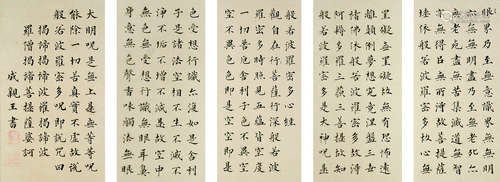 眼界乃至無意識界無無明
亦無無明盡乃至無老死亦
無老死盡無苦集滅道無智
亦無得以無所得故菩提薩
埵依般若波羅密多故心無
罣礙無罣礙故無有恐怖遠
離顛倒夢想究竟涅盤三世
諸佛依般若波羅密多故得
阿耨多羅三藐三菩提故知
般若波羅密多是大神咒是
般若波羅密多心經
觀自在菩薩行深般若波
羅密多時照見五蘊皆空度
一切苦厄舍利子色不異空
空不異色色即是空空即是
色受想行識亦復如是舍利
子是諸法空相不生不滅不
垢不淨不增不減是故空中
無色無受想行識無眼耳鼻
舌身意無色聲香味觸法無
大明咒是無上咒是無等等咒
能除一切苦真實不虛故說
般若波羅密多咒即說咒曰
揭諦揭諦波羅揭諦波
羅僧揭諦菩提薩婆訶
成親王書